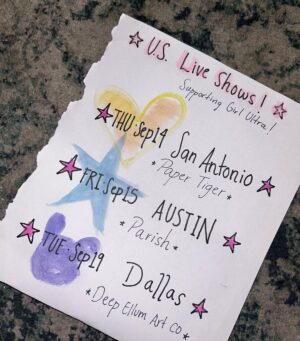 U.S. Live Shows!
Supporting Girl Ultra!
THU·Sep14 San Antonio
*Paper Tiger*
FRI·Sep15 AUSTIN
*Parish*
TUE·Sep19 Dallas
*Deep Ellum Art Co*